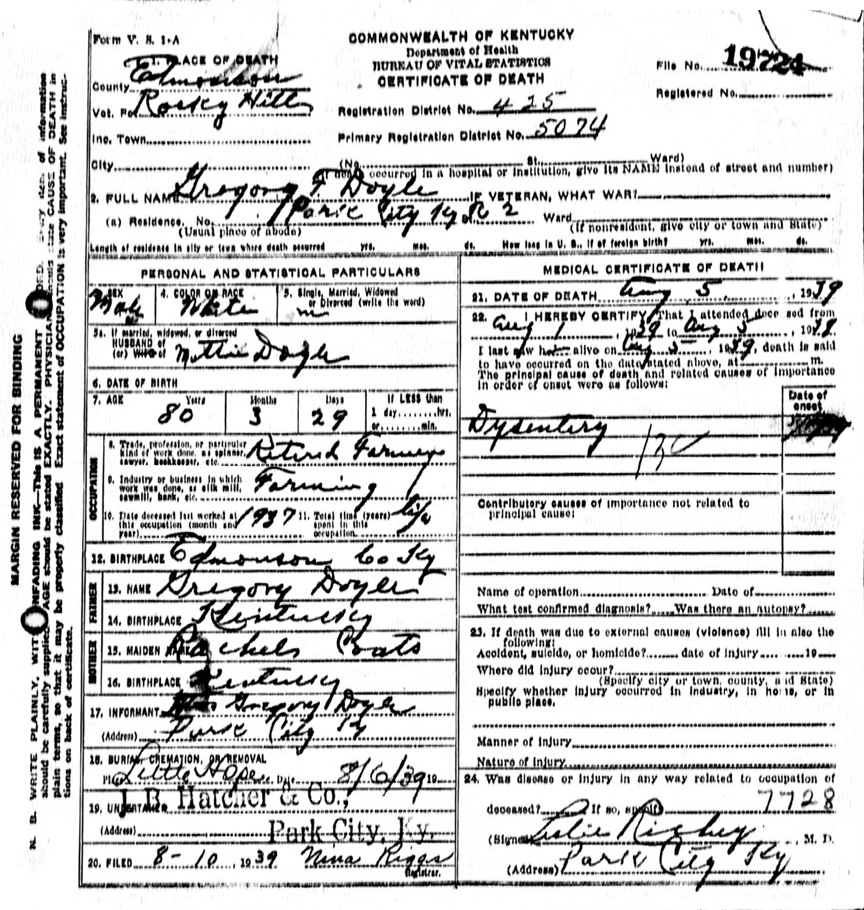 Form V. S. 1-A
COMMONWEALTH OF KENTUCKY
Department of Health
BUREAU OF VITAL STATISTICS
CERTIFICATE OF DEATH
File No. 19724
Registered No.
1. PLACE OF DEATH
County Edmonson
Vot. Pct. Rocky Hill
Registration District No. 425
Inc. Town
Primary Registration District No. 5074
City (No. St. Ward)
(If death occurred in a hospital or institution, give its NAME instead of street and number)
2. FULL NAME Gregory F Doyle IF VETERAN, WHAT WAR?
(a) Residence. No. Park City Ky R 2 Ward
(Usual place of abode) (If nonresident, give city or town and State)
Length of residence in city or town where death occurred yrs. mos. ds. How long in U. S., if of foreign birth? yrs. mos. ds.
PERSONAL AND STATISTICAL PARTICULARS
SEX Male
4. COLOR OR RACE White
5. Single, Married, Widowed or Divorced (write the word) m
5a. If married, widowed, or divorced
HUSBAND of
(or) WIFE of Mettie Doyle
6. DATE OF BIRTH
7. AGE Years Months Days If LESS than
80 3 29 1 day........hrs.
or........min.
OCCUPATION
8. Trade, profession, or particular
kind of work done, as spinner,
sawyer, bookkeeper, etc. Retired Farmer
9. Industry or business in which
work was done, as silk mill,
sawmill, bank, etc. Farming
10. Date deceased last worked at
this occupation (month and
year) 1937
11. Total time (years)
spent in this
occupation life
12. BIRTHPLACE Edmonson Co Ky
FATHER
13. NAME Gregory Doyle
14. BIRTHPLACE Kentucky
MOTHER
15. MAIDEN NAME Rachels Coats
16. BIRTHPLACE Kentucky
17. INFORMANT Gregory Doyle
(Address) Park City Ky
18. BURIAL, CREMATION, OR REMOVAL
Place Little Hope Date 8/6/39 19
19. UNDERTAKER J. B. Hatcher & Co.,
(Address) Park City, Ky.
20. FILED 8-10, 1939 Nina Riggs
Registrar.
MEDICAL CERTIFICATE OF DEATH
21. DATE OF DEATH Aug 5, 1939
22. I HEREBY CERTIFY, That I attended deceased from
Aug 1, 1939 to Aug 5, 1939.
I last saw h alive on Aug 5, 1939, death is said
to have occurred on the date stated above, at m.
The principal cause of death and related causes of importance
in order of onset were as follows:
Date of
onset
Dysentery
Contributory causes of importance not related to
principal cause:
Name of operation Date of
What test confirmed diagnosis? Was there an autopsy?
23. If death was due to external causes (violence) fill in also the
following:
Accident, suicide, or homicide? date of injury 19
Where did injury occur?
(Specify city or town, county, and State)
Specify whether injury occurred in industry, in home, or in
public place.
Manner of injury
Nature of injury
24. Was disease or injury in any way related to occupation of
deceased? If so, specify 7728
(Signed) Leslie Rigsby, M. D.
(Address) Park City Ky
MARGIN RESERVED FOR BINDING
N. B. WRITE PLAINLY, WITH UNFADING INK—This IS A PERMANENT RECORD. Every item of information
should be carefully supplied. AGE should be stated EXACTLY. PHYSICIANS should state CAUSE OF DEATH in
plain terms, so that it may be properly classified. Exact statement of OCCUPATION is very important. See instruc-
tions on back of certificate.